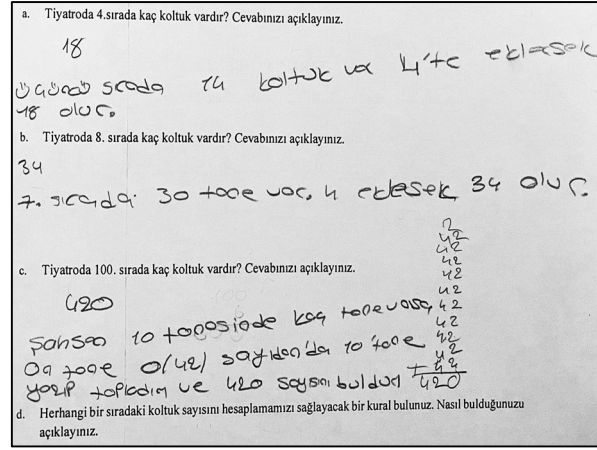 a. Tiyatroda 4.sırada kaç koltuk vardır? Cevabınızı açıklayınız.
18
üçüncü sırada 14 koltuk var 4'te eklersek
18 olur.
b. Tiyatroda 8. sırada kaç koltuk vardır? Cevabınızı açıklayınız.
34
7. sırada 30 tane var, 4 eklesek 34 olur.
c. Tiyatroda 100. sırada kaç koltuk vardır? Cevabınızı açıklayınız.
420
2
42
42
42
42
42
42
42
42
42
+ 42
420
10 tanesinde kaç tane varsa
On tane o(42) sayıdan'da 10 tane
yazıp topladım ve 420 sayısını buldum
d. Herhangi bir sıradaki koltuk sayısını hesaplamamızı sağlayacak bir kural bulunuz. Nasıl bulduğunuzu
açıklayınız.